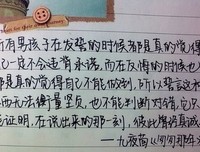 所有男孩子在发誓的时候都是真的觉得
己一定不会违背承诺，而在反悔的时候也
都是真的觉得自己不能做到，所以誓言这
西无法衡量坚贞，也不能判断对错，它只
能证明，在说出来的那一刻，彼此曾经真诚
——九夜茴《匆匆那年》